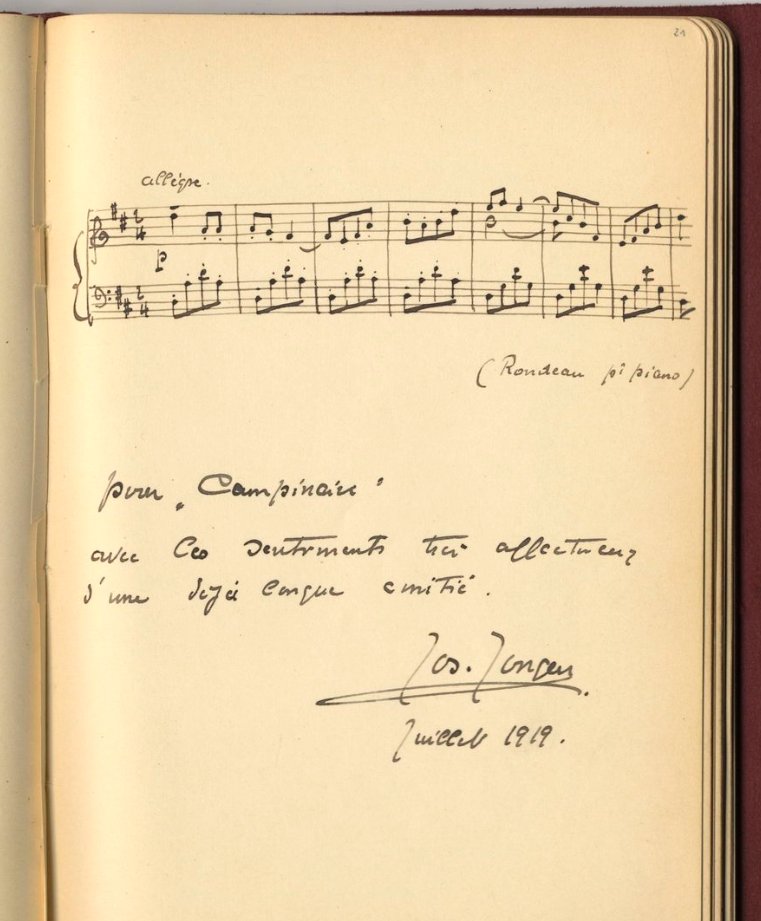 21
allégre.
2
4
p
2
4
(Rondeau pr piano)
pour „Campinaire"
avec les sentiments très affectueux
d'une déjà longue amitié.
Jos. Jongen
Juillet 1919.